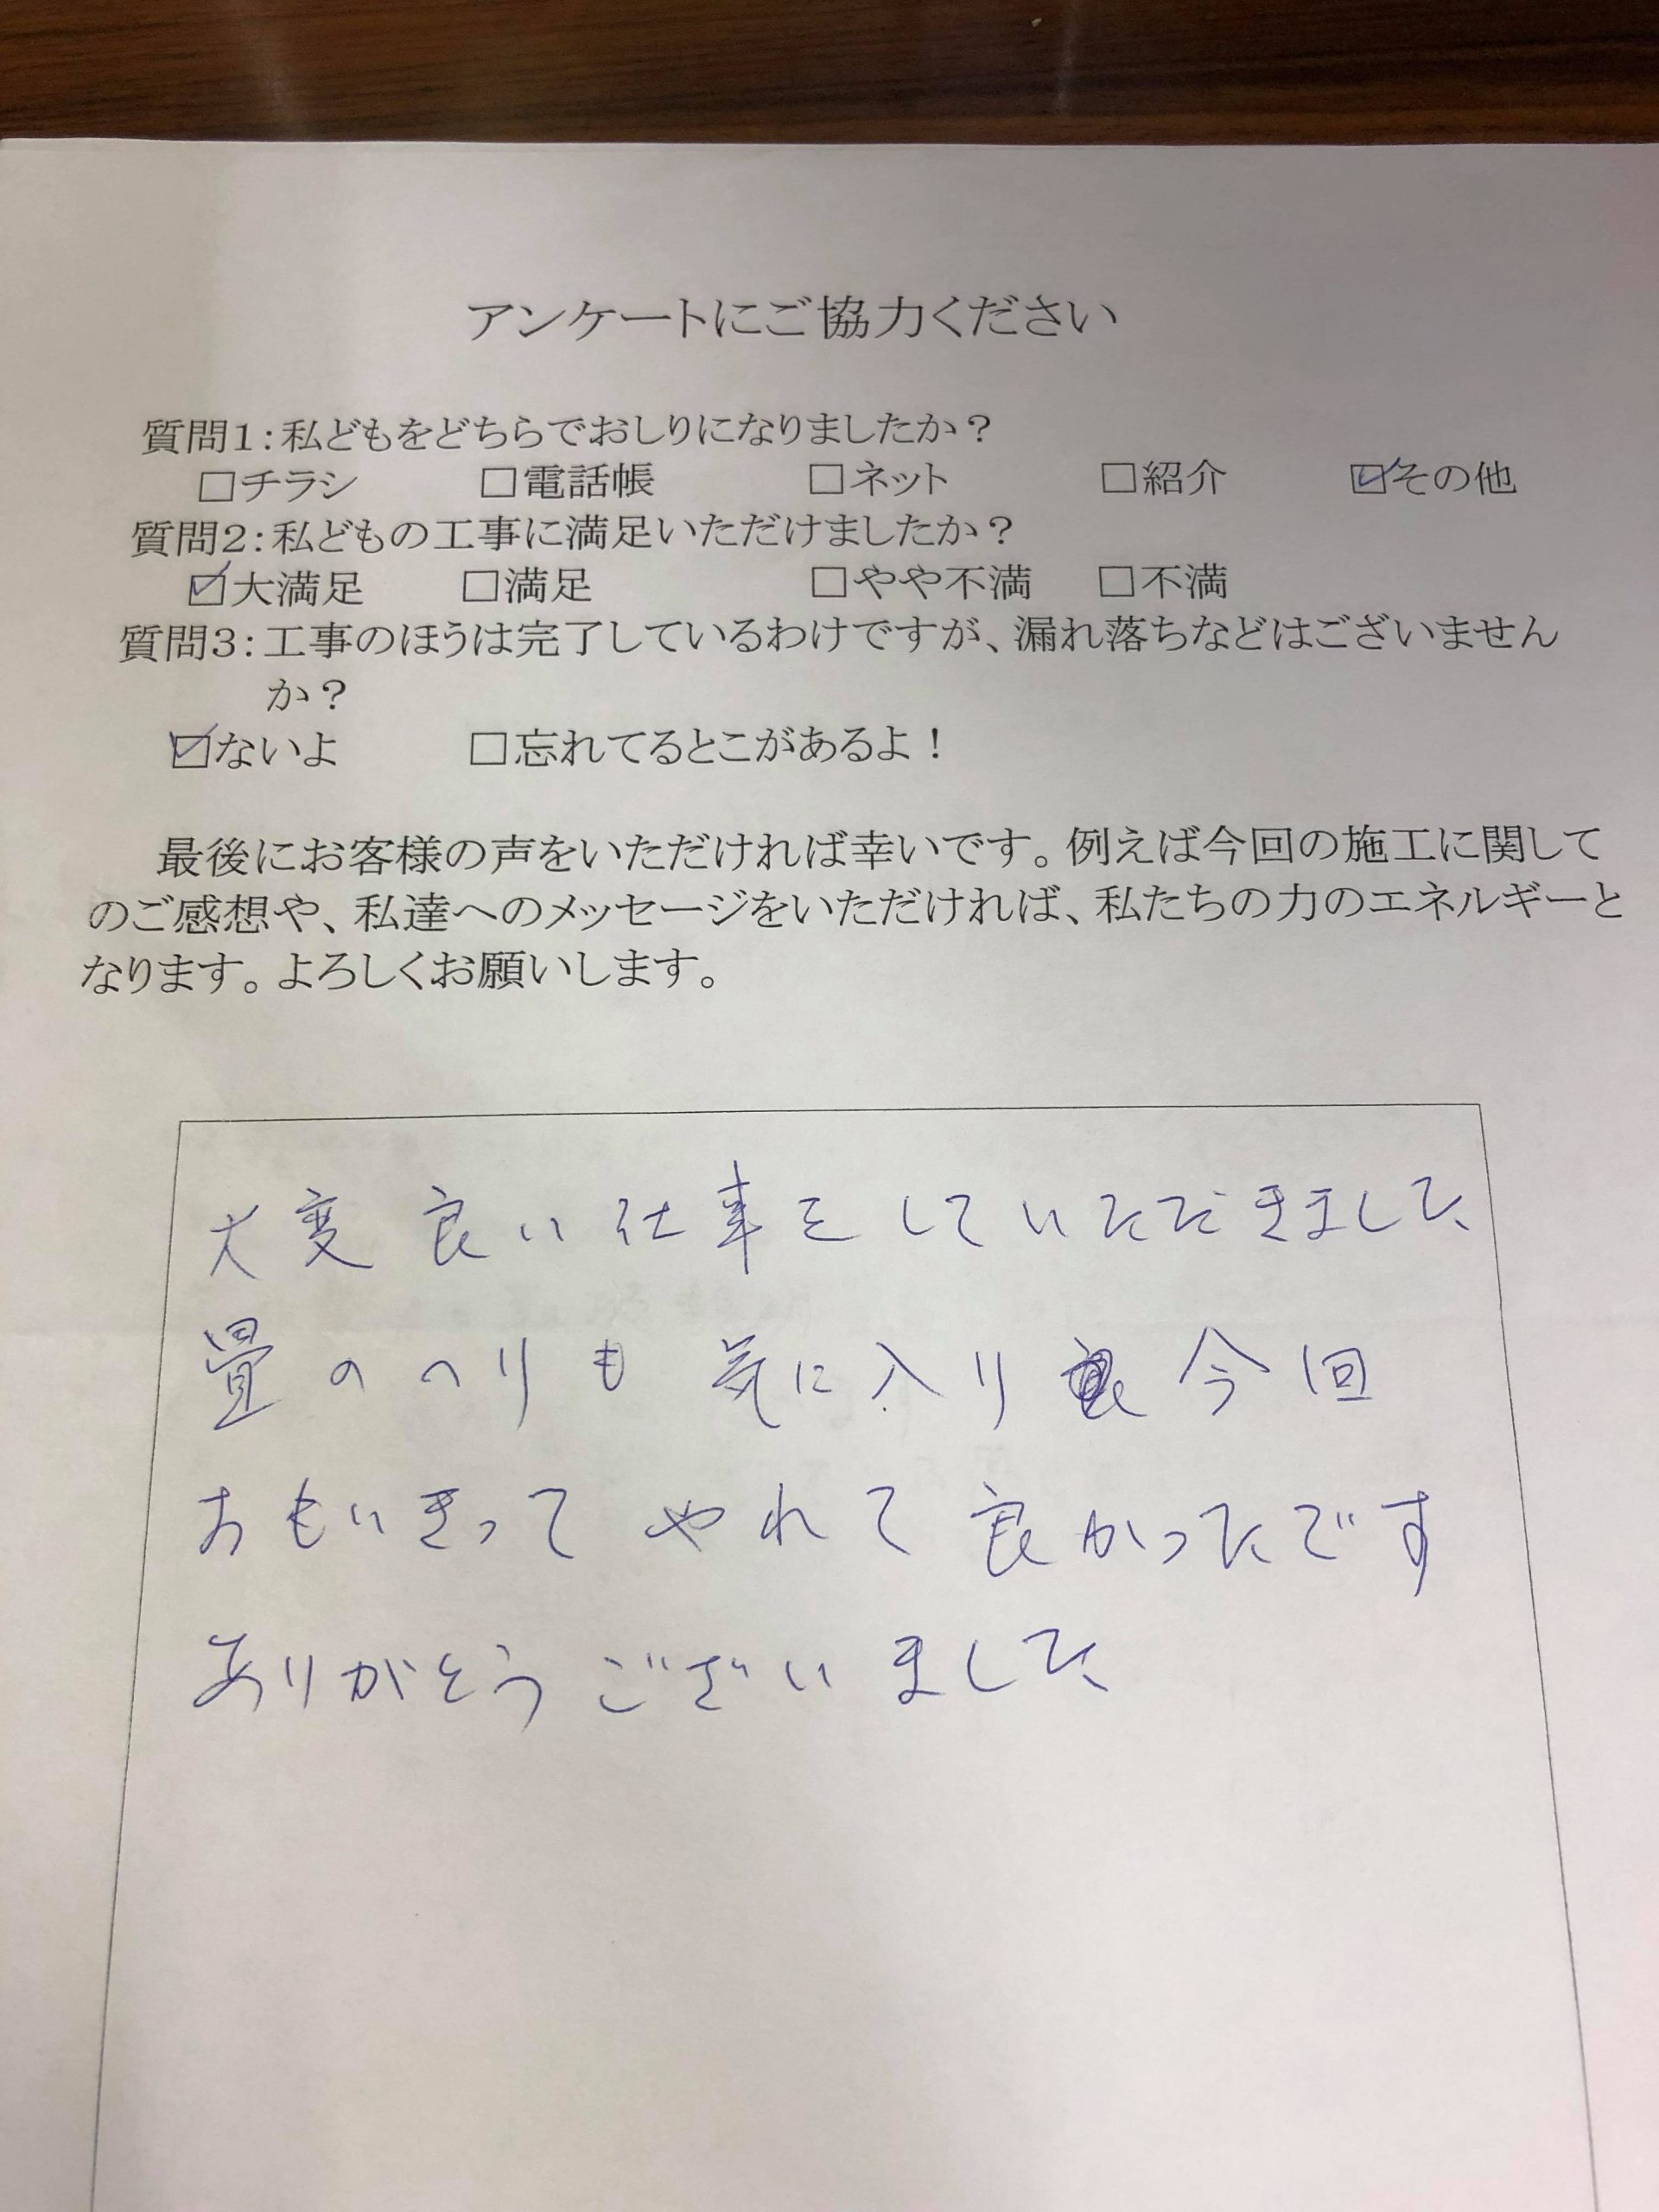 アンケートにご協力ください
質問1:私どもをどちらでおしりになりましたか?
□チラシ □電話帳 □ネット □紹介 ☑その他
質問2:私どもの工事に満足いただけましたか?
☑大満足 □満足 □やや不満 □不満
質問3:工事のほうは完了しているわけですが、漏れ落ちなどはございません
か?
☑ないよ □忘れてるとこがあるよ!
最後にお客様の声をいただければ幸いです。例えば今回の施工に関して
のご感想や、私達へのメッセージをいただければ、私たちの力のエネルギーと
なります。よろしくお願いします。
大変良い仕事をしていただきました
畳のへりも 気に入り 今回
おもいきって やれて 良かったです
ありがとうございました